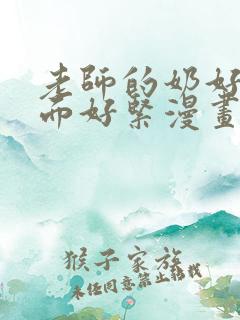 老師的奶好
而好緊漫畫
猴子家族
未经同意禁止转载